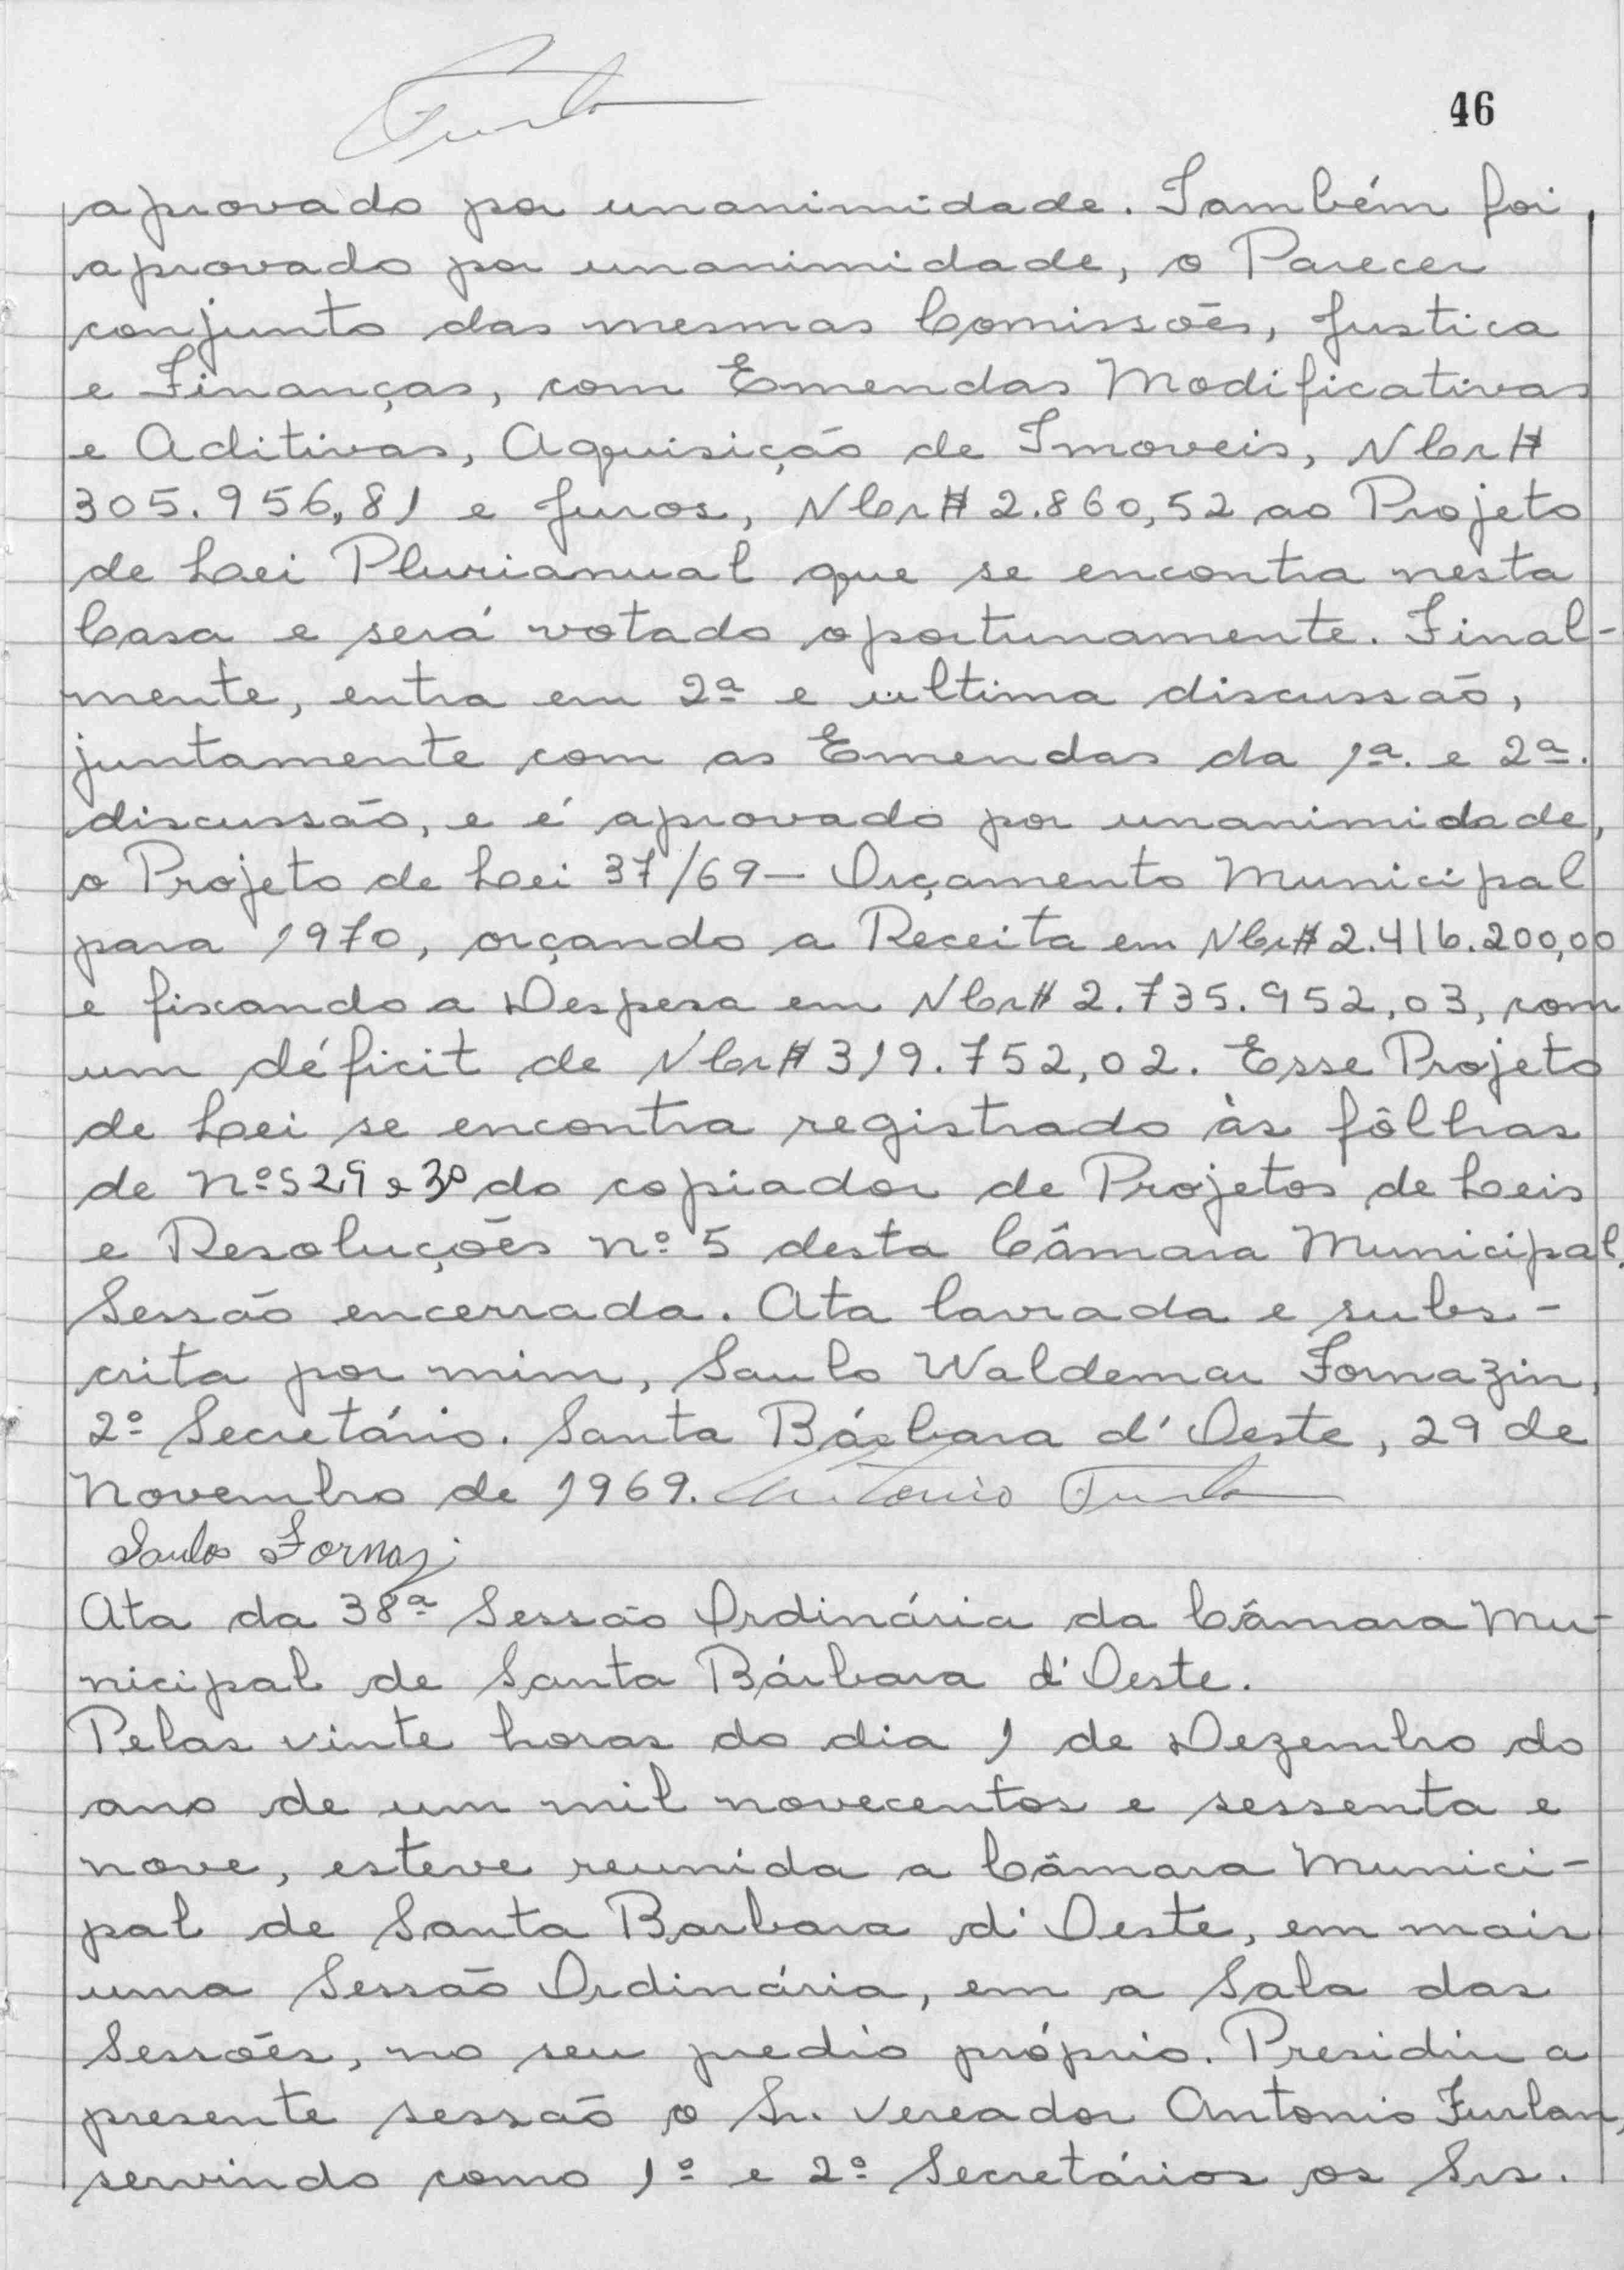 46
aprovado por unanimidade. Também foi
aprovado por unanimidade, o Parecer
conjunto das mesmas Comissões, Justica
e Finanças, com Emendas Modificativas
e Aditivas, Aquisição de Imoveis, NCr$
305.956,81 e Juros, NCr$ 2.860,52 ao Projeto
de Lei Plurianual que se encontra nesta
Casa e será votado oportunamente. Final-
mente, entra em 2ª e ultima discussão,
juntamente com as Emendas da 1ª. e 2ª.
discussão, e é aprovado por unanimidade,
o Projeto de Lei 37/69 - Orçamento Municipal
para 1970, orçando a Receita em NCr$ 2.416.200,00
e fixando a Despesa em NCr$ 2.735.952,03, com
um déficit de NCr$ 319.752,02. Esse Projeto
de Lei se encontra registrado às fôlhas
de nºs 29 e 30 do copiador de Projetos de Leis
e Resoluções nº 5 desta Câmara Municipal.
Sessão encerrada. Ata lavrada e subs-
crita por mim, Saulo Waldemar Fornazin,
2º Secretário. Santa Bárbara d'Oeste, 29 de
Novembro de 1969. Antonio Furlan
Saulo Fornazi
Ata da 38ª Sessão Ordinária da Câmara Mu-
nicipal de Santa Bárbara d'Oeste.
Pelas vinte horas do dia 1 de Dezembro do
ano de um mil novecentos e sessenta e
nove, esteve reunida a Câmara Munici-
pal de Santa Barbara d'Oeste, em mais
uma Sessão Ordinária, em a Sala das
Sessões, no seu predio próprio. Presidiu a
presente sessão o Sr. Vereador Antonio Furlan,
servindo como 1º e 2º Secretários os Srs.